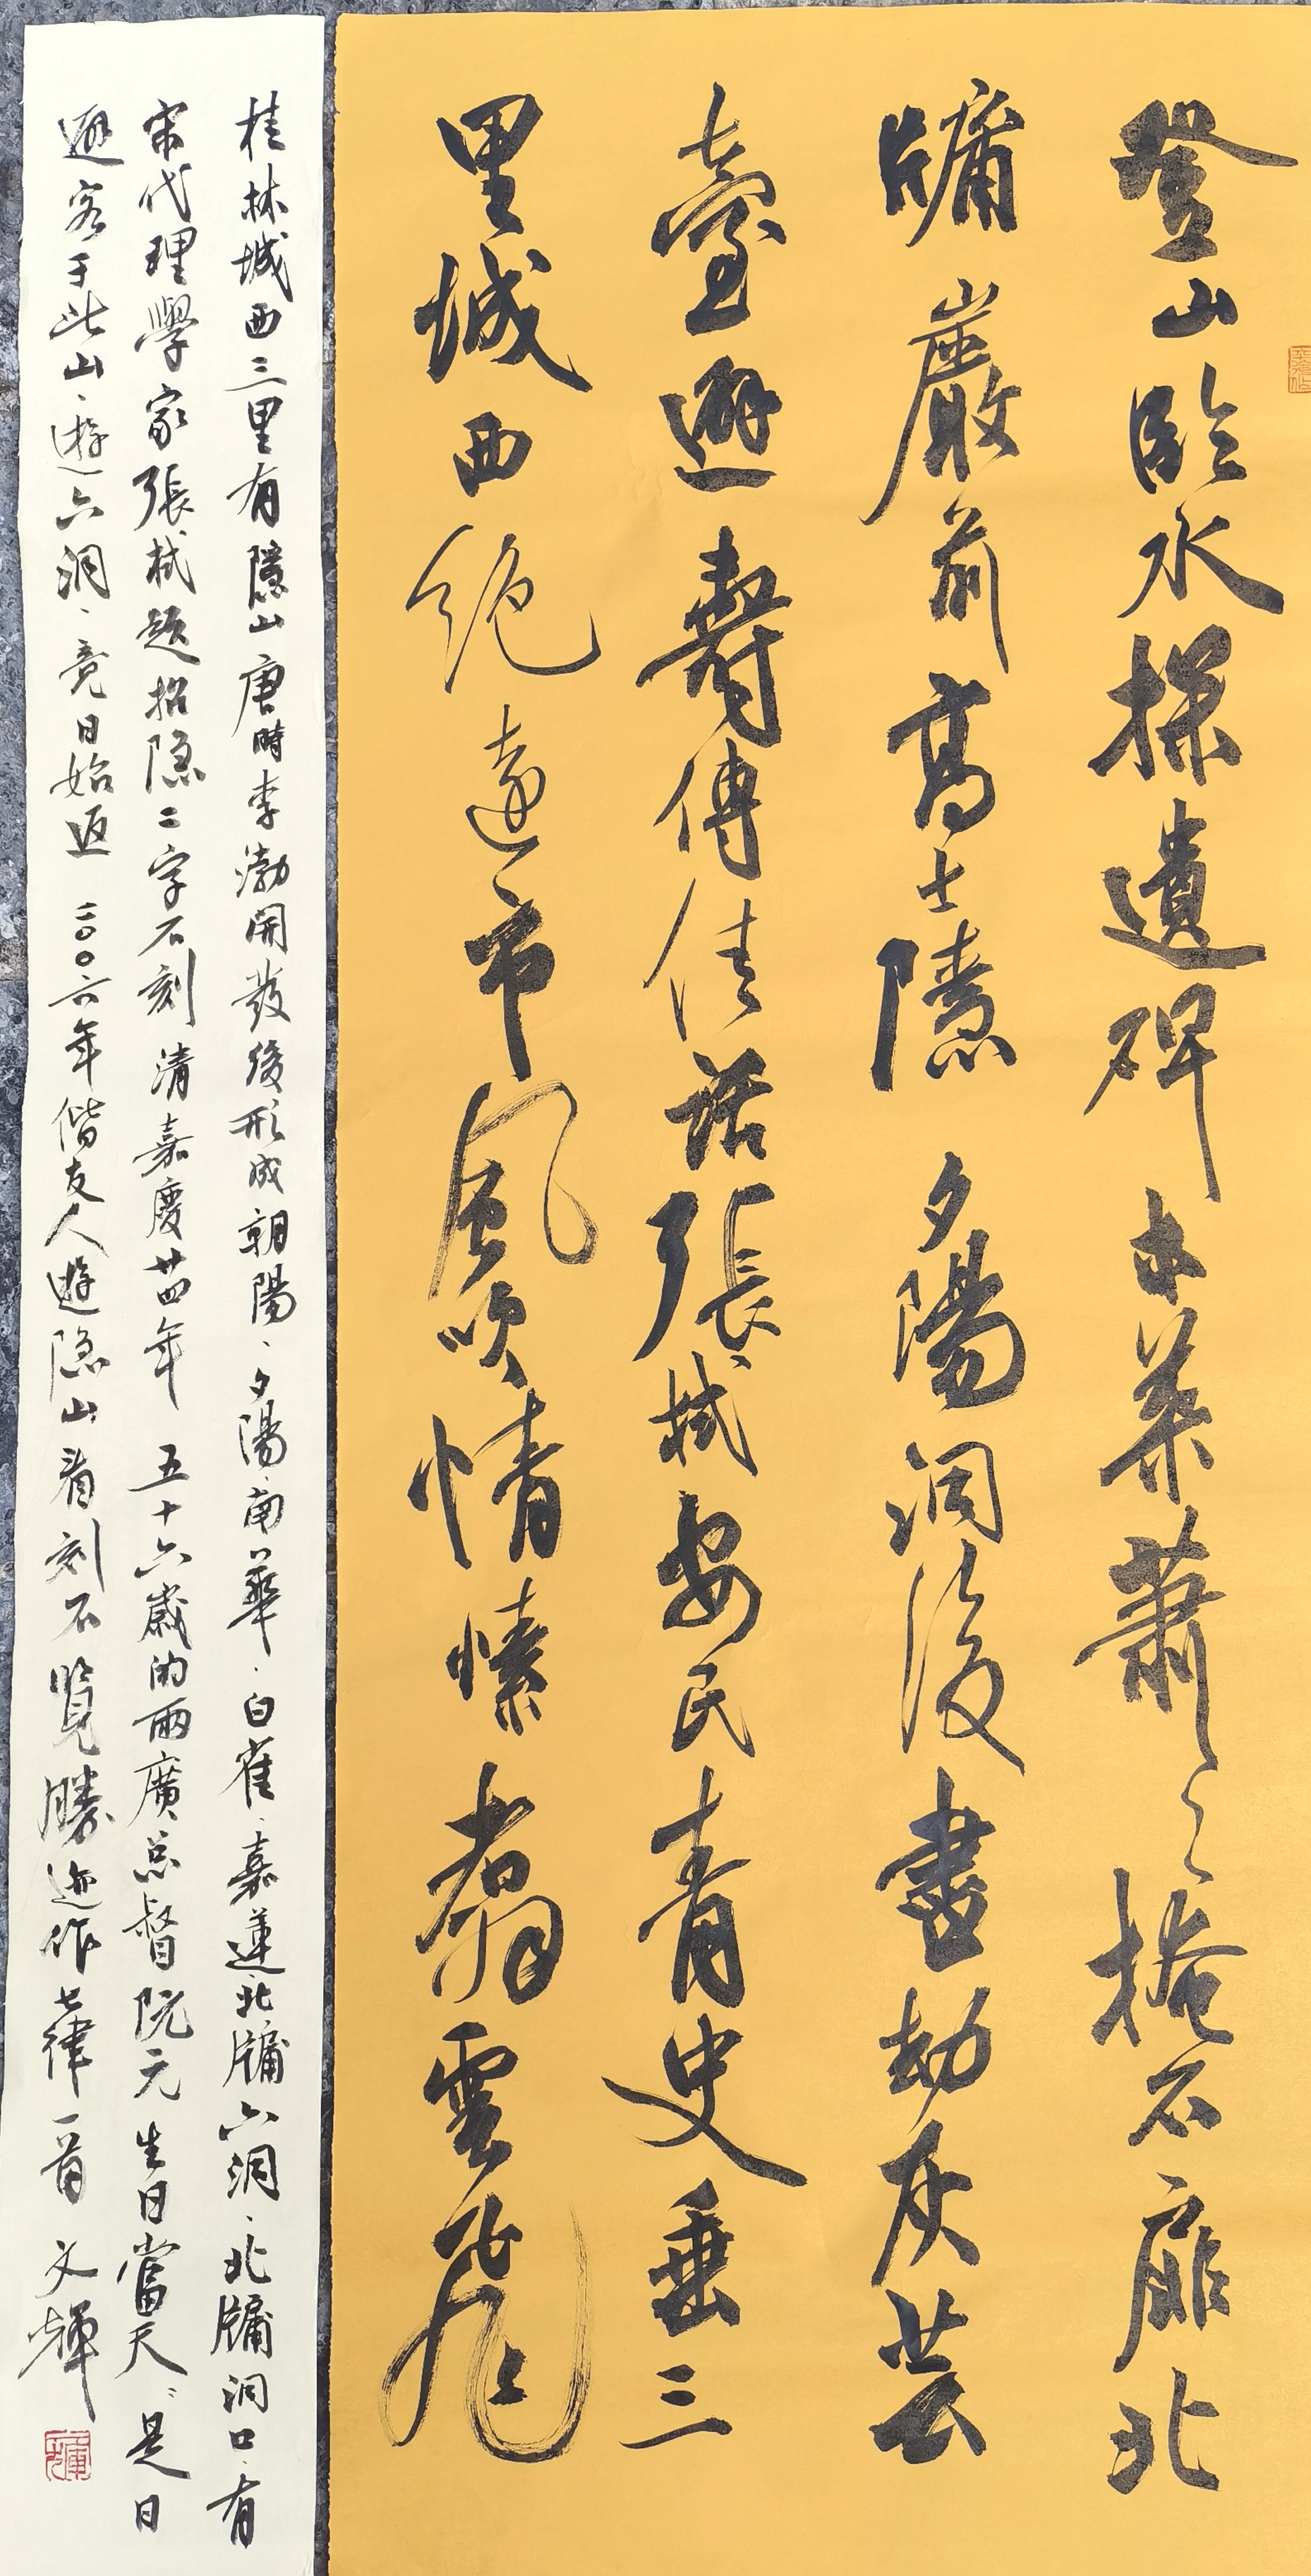 登山臨水探遺碑木葉蕭〻掩石扉北
牖巖前高士隱夕陽洞後盡劫灰芸
臺避壽傳佳話張栻安民青史垂三
里城西絕遠市風吹情愫翥雲飛
桂林城西三里有隱山唐時李渤開發後形成朝陽、夕陽、南華、白雀、嘉蓮、北牖六洞、北牖洞口、有
宋代理學家張栻題招隐二字石刻清嘉慶廿四年五十六歲的兩廣总督阮元生日當天、是日
避客于此山、遊六洞、竟日始返二〇〇六年偕友人遊隐山看刻石覽勝迹作七律一首文輝